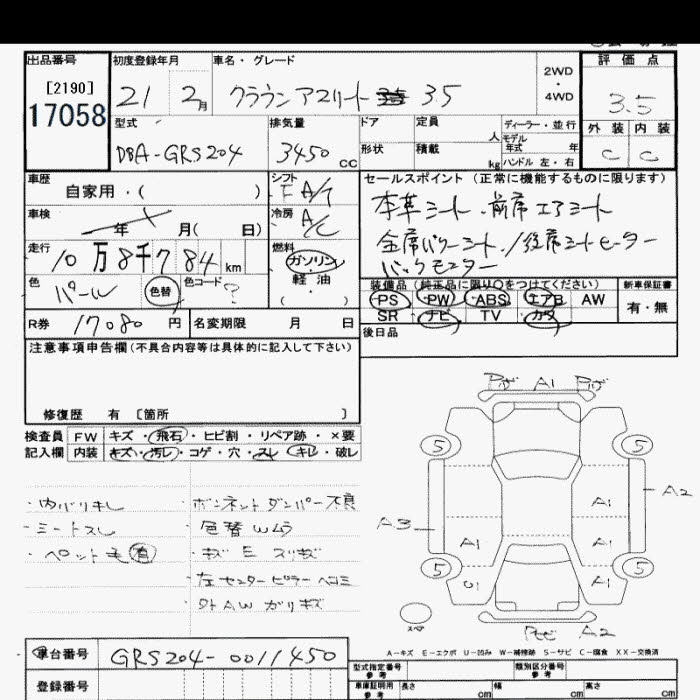 出品番号 初度登録年月 車名・グレード 2WD・4WD 評価点
[2190] 21 2月 クラウンアスリート 3.5 3.5
17058
型式 排気量 ドア 定員 人 ディーラー・並行 外装 内装
モデル年式 年
DBA-GRS204 3450cc 形状 積載 kg ハンドル 左・右 C C
車歴 シフト セールスポイント (正常に機能するものに限ります)
自家用・( ) FA/T 本革シート.前席エアシート
車検 年 月( 日) 冷房 A/C 全席パワーシート/後席シートヒーター
走行 10万8千784km 燃料 ガソリン・軽油・( ) バックモニター
色 パール 色替 色コード ?
装備品 (純正品に限り○をつけてください) 新車保証書
PS PW ABS エアB AW 有・無
SR ナビ TV カワ
R券 17080円 名変期限 月 日 後日品
注意事項申告欄(不具合内容等は具体的に記入して下さい)
修復歴 有 [箇所 ]
検査員 FW キズ・飛石・ヒビ割・リペア跡・×要
記入欄 内装 キズ・汚レ・コゲ・穴・スレ・キレ・破レ
・内バリキレ ・ボンネットダンパー不良
・シートスレ ・色替Wムラ
・ペット毛有 ・キズE スリキズ
・左センターピラーヘコミ
・外AWガリキズ
A1
5 5
A2
A3 A1
A1 A1
5 5
U1 A1
A2
スペア
A-キズ E-エクボ U-凹み W-補修跡 S-サビ C-腐食 XX-交換済
車台番号 GRS204-0011450
登録番号
型式指定番号 参考 類別区分番号 参考
車庫証明用 参考 長さ cm 幅 cm 高さ cm